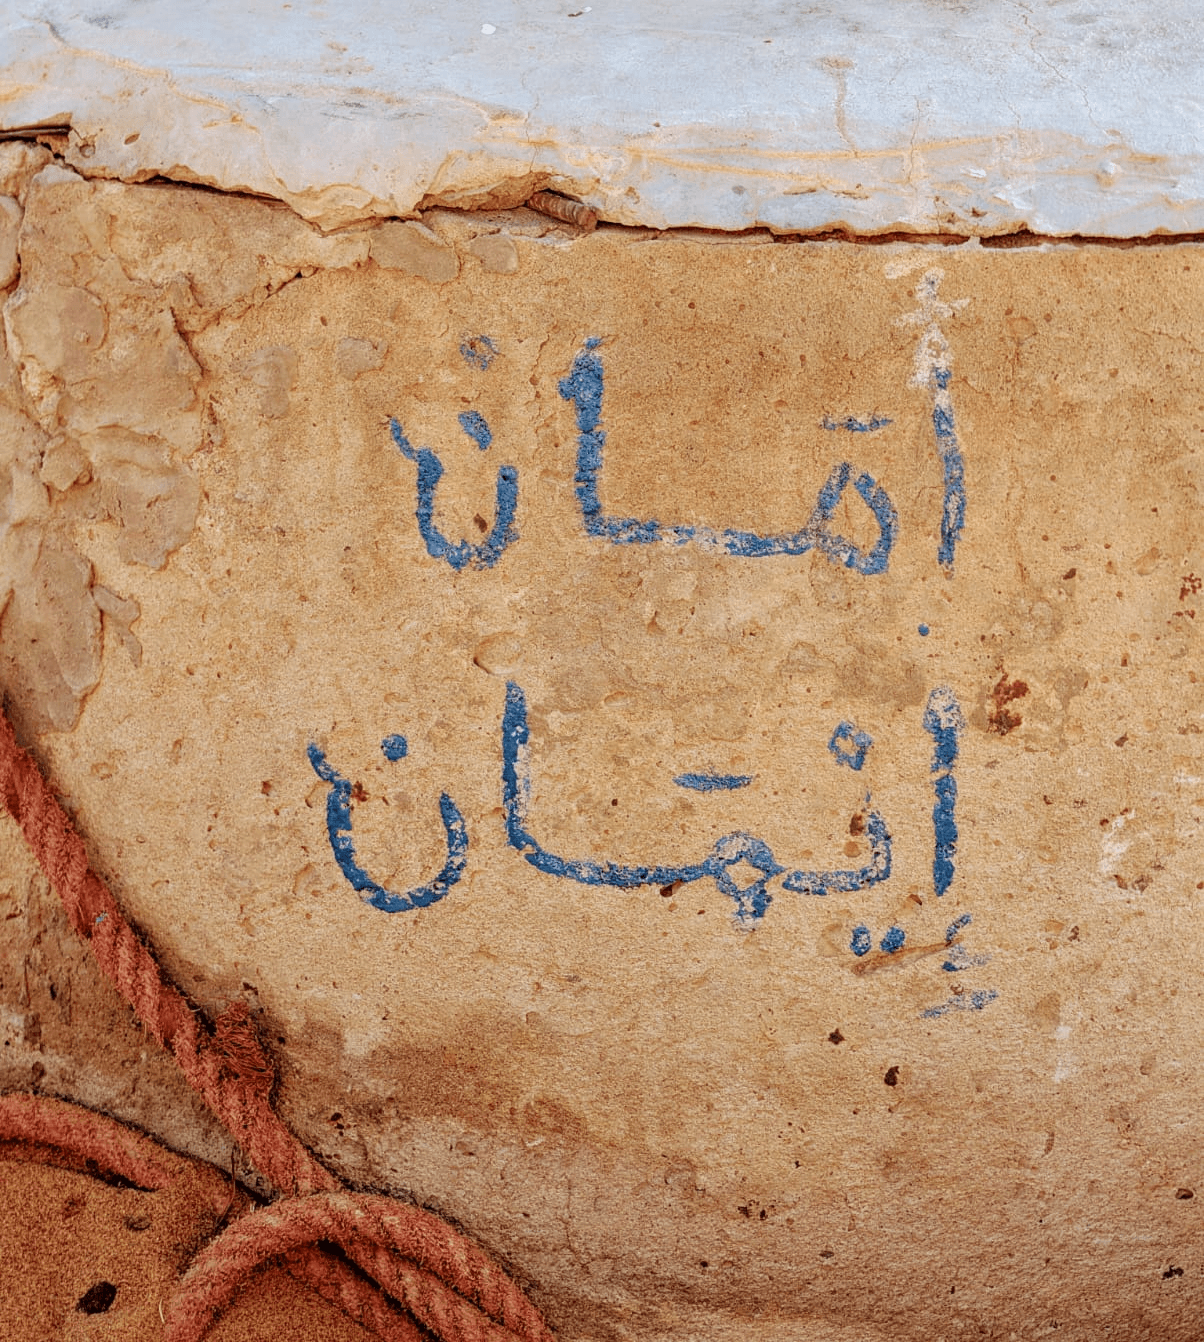 أَمَان
إِيمَان